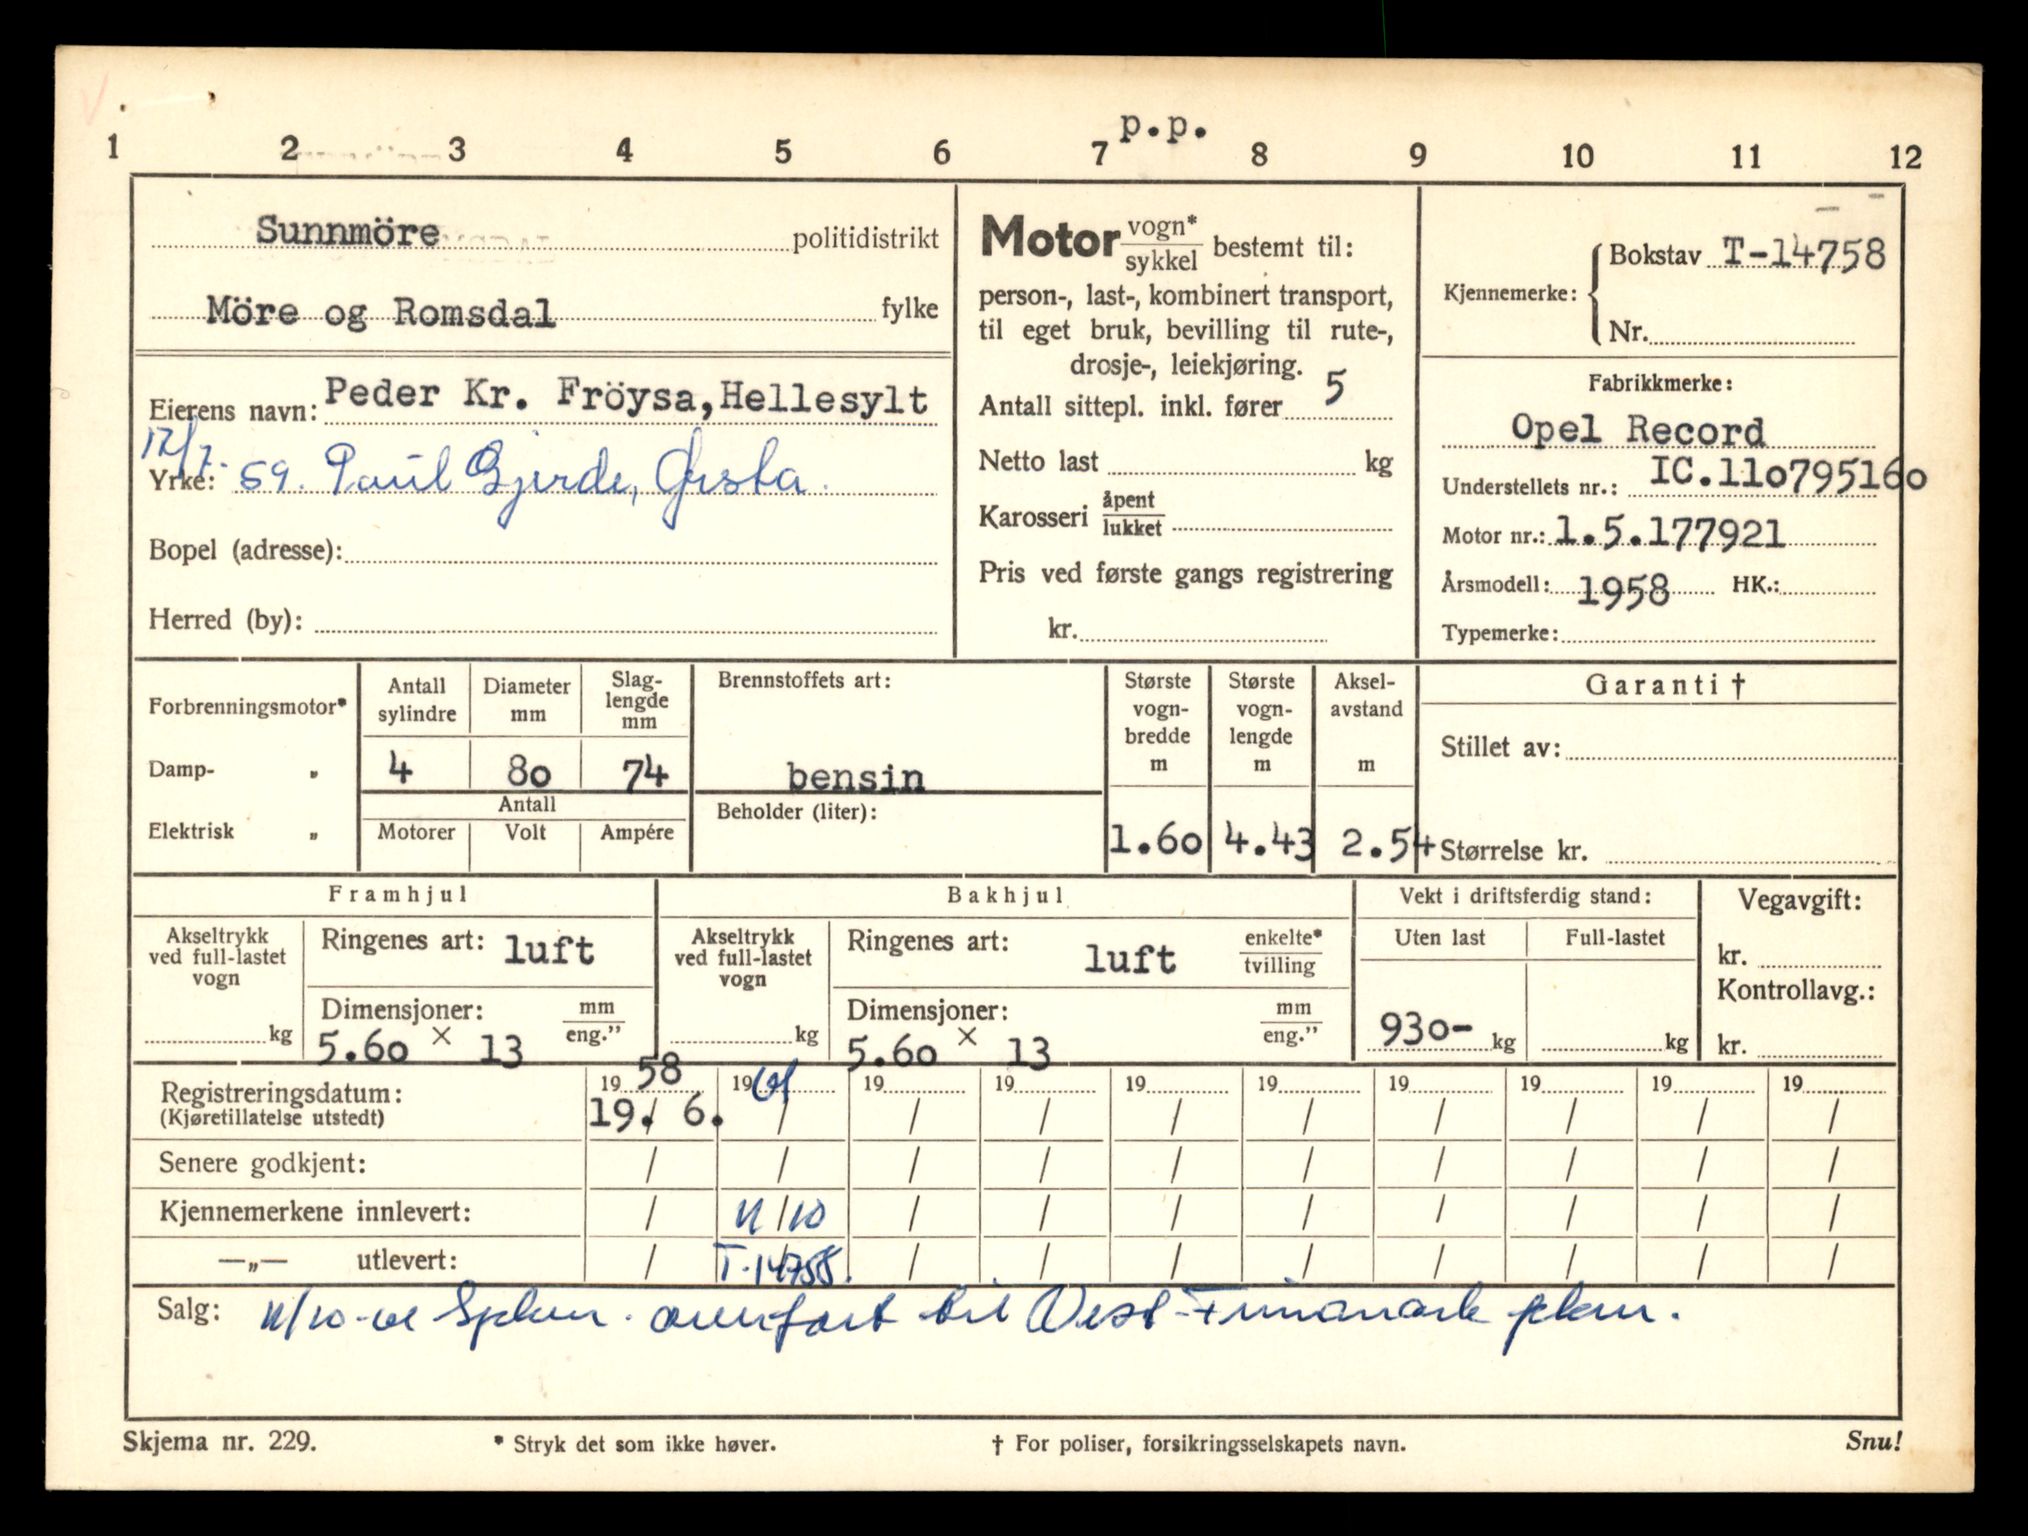 p.p.
1 2 3 4 5 6 7 8 9 10 11 12
Sunnmöre politidistrikt
Möre og Romsdal fylke
Eierens navn: Peder Kr. Fröysa, Hellesylt
12/7.
Yrke: 59. Paul Gjerde, Ørsta.
Bopel (adresse):
Herred (by):
Motor vogn* / sykkel bestemt til:
person-, last-, kombinert transport,
til eget bruk, bevilling til rute-,
drosje-, leiekjøring.
Antall sittepl. inkl. fører 5
Netto last kg
Karosseri åpent / lukket
Pris ved første gangs registrering
kr.
Kjennemerke: Bokstav T-14758
Nr.
Fabrikkmerke:
Opel Record
Understellets nr.: IC.110795160
Motor nr.: 1.5.177921
Årsmodell: 1958 HK.:
Typemerke:
Forbrenningsmotor*
Damp- „
Elektrisk „
Antall sylindre
4
Diameter mm
80
Slag-
lengde
mm
74
Antall
Motorer Volt Ampére
Brennstoffets art:
bensin
Beholder (liter):
Største
vogn-
bredde
m
1.60
Største
vogn-
lengde
m
4.43
Aksel-
avstand
m
2.54
Garanti †
Stillet av:
Størrelse kr.
Framhjul
Akseltrykk
ved full-lastet
vogn
kg
Ringenes art: luft
Dimensjoner: mm / eng.”
5.60 × 13
Bakhjul
Akseltrykk
ved full-lastet
vogn
kg
Ringenes art: luft enkelte* / tvilling
Dimensjoner: mm / eng.”
5.60 × 13
Vekt i driftsferdig stand:
Uten last Full-lastet
930- kg kg
Vegavgift:
kr.
Kontrollavg.:
kr.
Registreringsdatum: 19 58 19 61 19 19 19 19 19 19 19 19
(Kjøretillatelse utstedt) 19./ 6. / / / / / / / / /
Senere godkjent: / / / / / / / / / /
Kjennemerkene innlevert: / 11/10 / / / / / / / /
—„— utlevert: / T-14758. / / / / / / / /
Salg: 11/10-61 overført til Vest-Finnmark
Skjema nr. 229. * Stryk det som ikke høver. † For poliser, forsikringsselskapets navn. Snu!